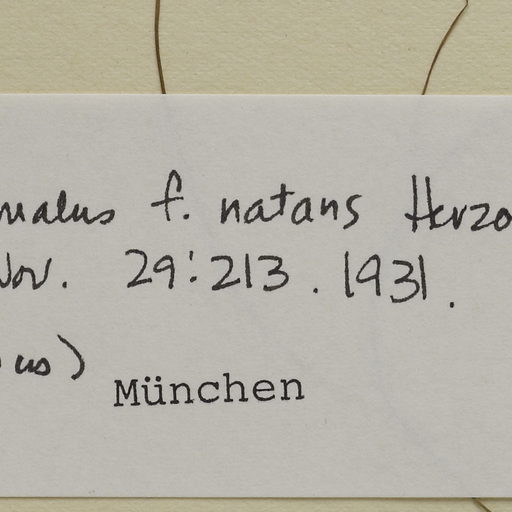 f. natans Herzo
Nov. 29:213. 1931.
us)
München